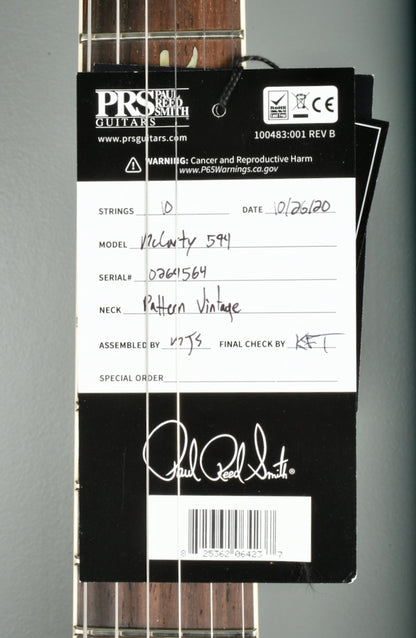 PRS PAUL REED SMITH
GUITARS
www.prsguitars.com
RoHS
CE
100483:001 REV B
WARNING: Cancer and Reproductive Harm
www.P65Warnings.ca.gov
STRINGS 10 DATE 10/26/20
MODEL McCarty 594
SERIAL# 0264564
NECK Pattern Vintage
ASSEMBLED BY MJS FINAL CHECK BY KFT
SPECIAL ORDER
Paul Reed Smith®
8 25362 06423 7